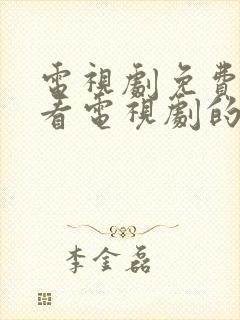 電視劇免費
看電視劇的
李金磊